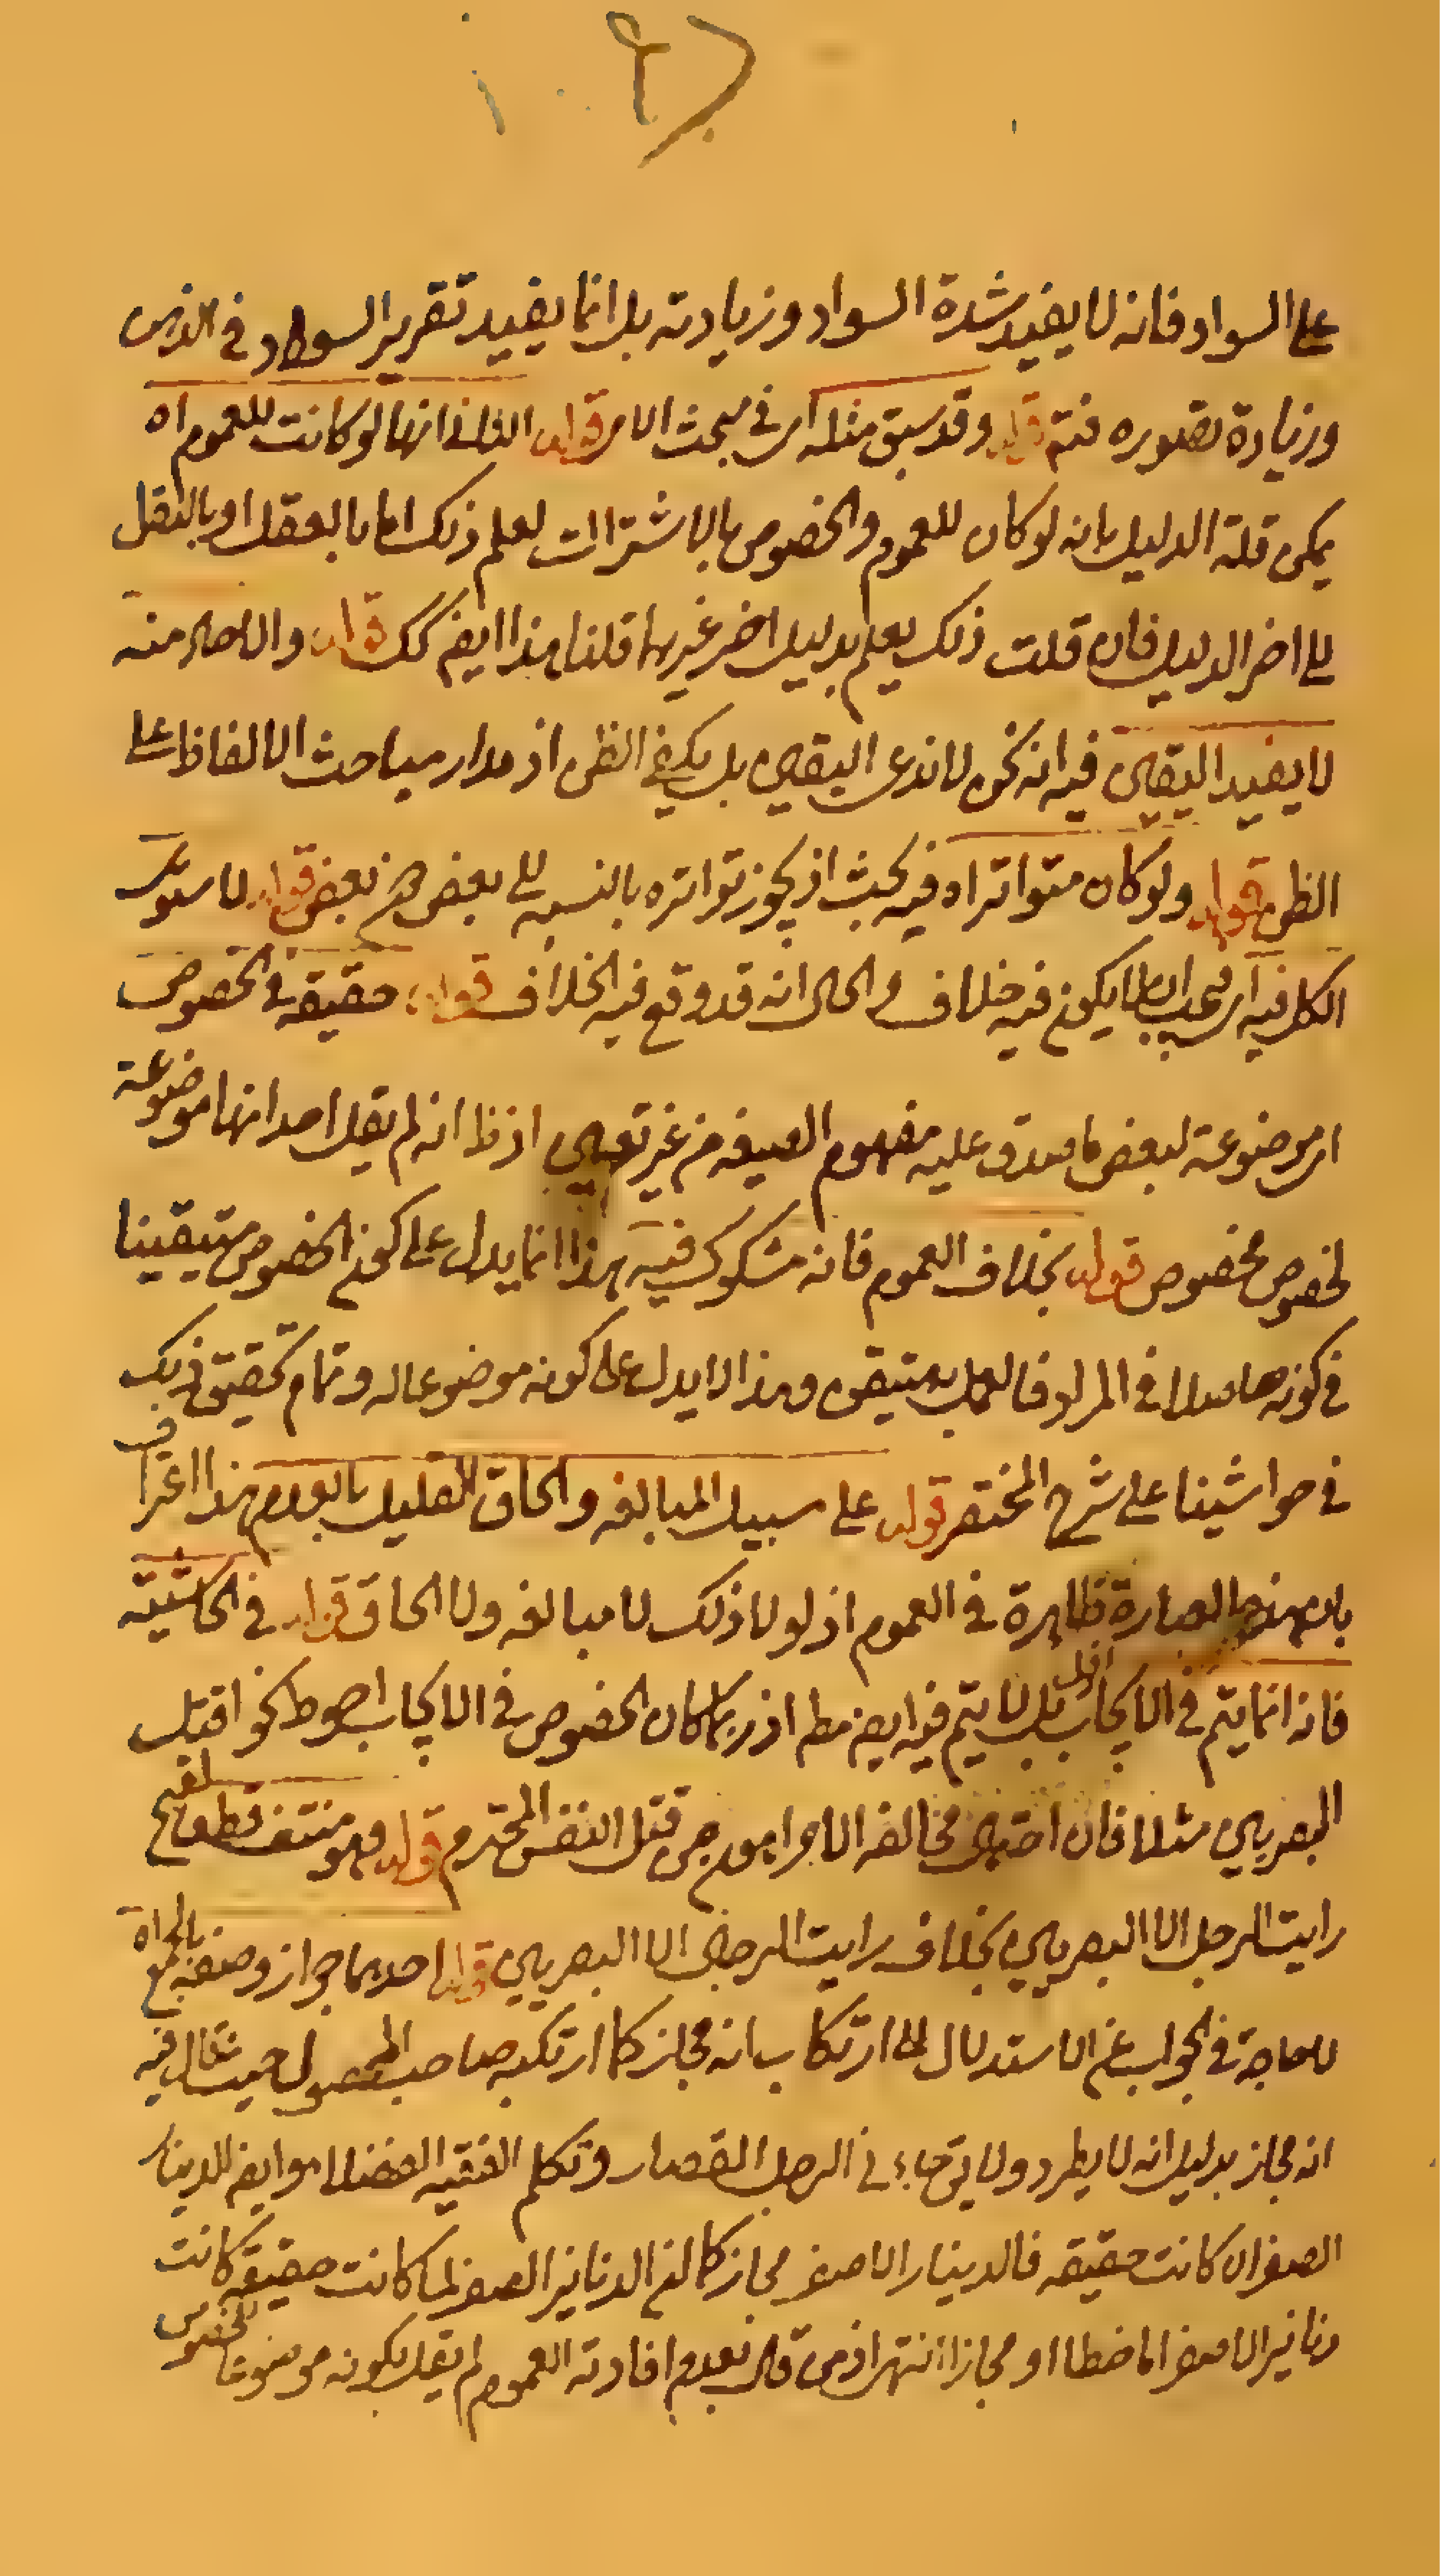 على السواد فانه لا يفيد شدة السواد وزيادته بل انما يفيد تقرير السواد في الذهن
وزيادة تصوره فتم قوله وقد سبق مثله اى في مبحث الامر قوله الثالث انها لو كانت للعموم اه
يمكن قلة الدليل بانه لو كان للعموم والخصوص بالاشتراك لعلم ذلك اما بالعقل او بالنقل
الى اخر الدليل فان قلت ذلك يعلم بدليل اخر غيرهما قلنا هذا ايض كك قوله والاحاد منه
لا يفيد اليقين فيه انه نحن لا ندعى اليقين بل يكفى الظن اذ مدار مباحث الالفاظ على
الظن قوله ولو كان متواترا اه فيه بحث اذ يجوز تواتره بالنسبه الى بعض دون بعض قوله لاستوى
الكل فيه اى فيجب ان لا يكون فيه خلاف والحال انه قد وقع فيه الخلاف قوله حقيقه في الخصوص
اى موضوعة لبعض ما صدق عليه مفهوم الصيغه من غير تعيين اذ ظ انه لم يقل احد انها موضوعة
لخصوص مخصوص قوله بخلاف العموم فانه مشكوك فيه هذا انما يدل على كون الخصوص متيقينا
في كونه حاصلا في المراد فالعمل به متيقن وهذا لا يدل على كونه موضوعا له وتمام تحقيق ذلك
في حواشينا على شرح المختصر قوله على سبيل المبالغه والحاق القليل بالعدم هذا اعتراف
بان هذه العبارة ظاهرة في العموم اذ لولا ذلك لا مبالغه ولا الحاق قوله في الحاشية
فانه انما يتم في الايجاب اقول بل لا يتم فيه ايض مطم اذ ربما كان الخصوص في الايجاب احوط نحو اقتل
البصريين مثلا فان احتمال مخالفه الامر اهون من قتل النفس المحترم قوله وهو منتف قطعا لقبح
رايت الرجل الا البصريين بخلاف رايت الرجال الا البصريين قوله احدهما جواز وصفه بالجمع اه
لا حاجة في الجواب عن الاستدلال الى ارتكاب انه مجاز كما ارتكبه صاحب المحصول حيث قال فيه
انه مجاز بدليل انه لا يطرد ولا يق جاءنى الرجل القصار وتكلم الفقيه الفضلاء وايض الدينار
الصفر ان كانت حقيقه فالدينار الاصفر مجاز كما ان الدنانير الصفر لما كانت حقيقه كانت
دنانير الاصفر اما خطا او مجازا انتهى اذ من قال بعدم افادته العموم لم يقل بكونه موضوعا للخصوص